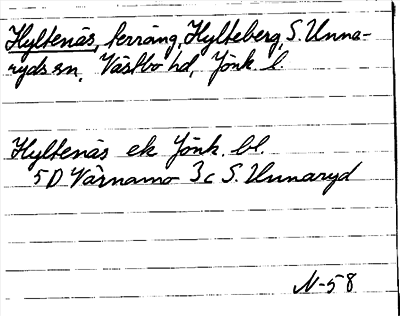 Hyltenäs, terräng, Hylteberg, S. Unna-
ryds sn, Västbo hd, Jönk. l.
Hyltenäs ek Jönk. bl.
5D Värnamo 3c S. Unnaryd
N-58